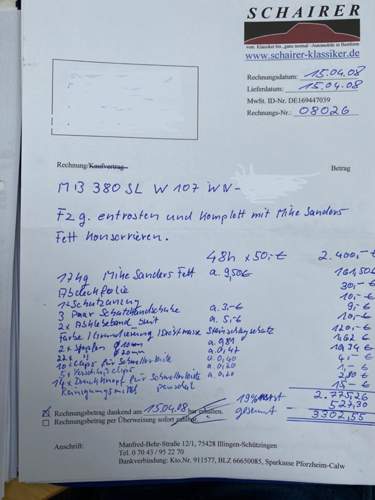 SCHAIRER
www.schairer-klassiker.de
Rechnungsdatum: 15.04.08
Lieferdatum: 15.04.08
MwSt. ID-Nr. DE169447039
Rechnungs-Nr.: 08026
Rechnung/Kaufvertrag
Betrag
MB 380 SL W 107 WN-
Fzg. entrosten und komplett mit Mike Sanders
Fett konservieren.
48h x 50,-€ 2.400,-€
17kg Mike Sanders Fett a. 9,50€ 161,50€
Abdeckfolie 30,-€
1x Schutzanzug 10,-€
3 Paar Schutzhandschuhe a. 3.-€ 9,-€
2x Abklebeband breit a. 5,-€ 10,-€
Farbe / Grundierung / Steinschlagschutz 120,-€
2x Stopfen a. 0,81 1,62 €
22x a. 0,47
10x Clips für Schwellerleiste a. 0,40 4,-€
5x Verschlussclips a. 0,20 1,-€
14x Druckknopf für Schwellerleiste a. 0,20 2,80 €
Reinigungsmittel pauschal 15,-€
2.775,26
19% Mwst 527,30
gesamt 3302,55
Rechnungsbetrag dankend am 15.04.08 bar erhalten.
Rechnungsbetrag per Überweisung sofort zahlbar.
Anschrift: Manfred-Behr-Straße 12/1, 75428 Illingen-Schützingen
Tel. 0 70 43 / 95 22 70
Bankverbindung: Kto.Nr. 911577, BLZ 66650085, Sparkasse Pforzheim-Calw